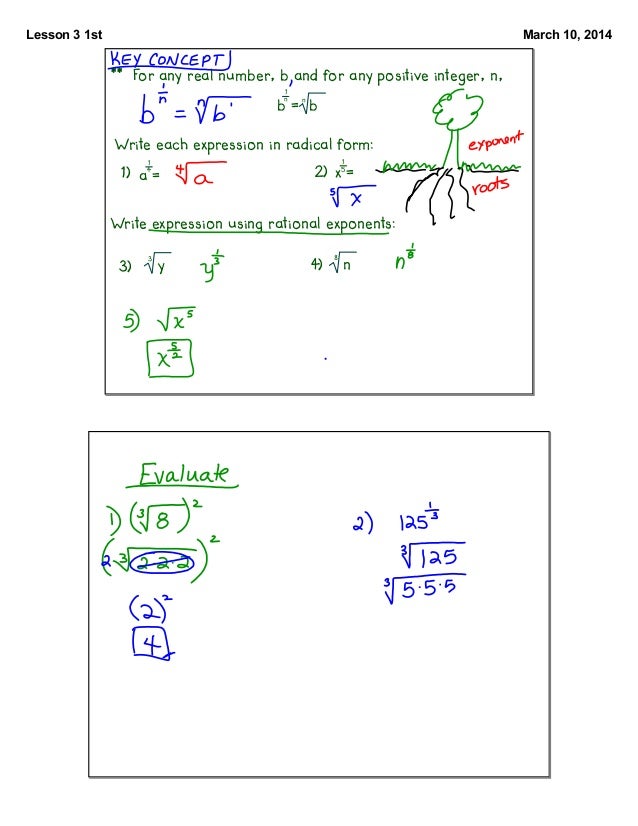 Lesson 3 1st March 10, 2014
KEY CONCEPT
** For any real number, b, and for any positive integer, n,
b^(1/n) = ⁿ√b b^(1/n) = ⁿ√b
Write each expression in radical form:
exponent
1) a^(1/4) = ⁴√a 2) x^(1/5) =
roots
⁵√x
Write expression using rational exponents:
3) ³√y y^(1/3) 4) ⁸√n n^(1/8)
5) √x⁵
x^(5/2)
Evaluate
1) (³√8)² 2) 125^(1/3)
(2 ³√2·2·2)² ³√125
³√5·5·5
(2)²
4